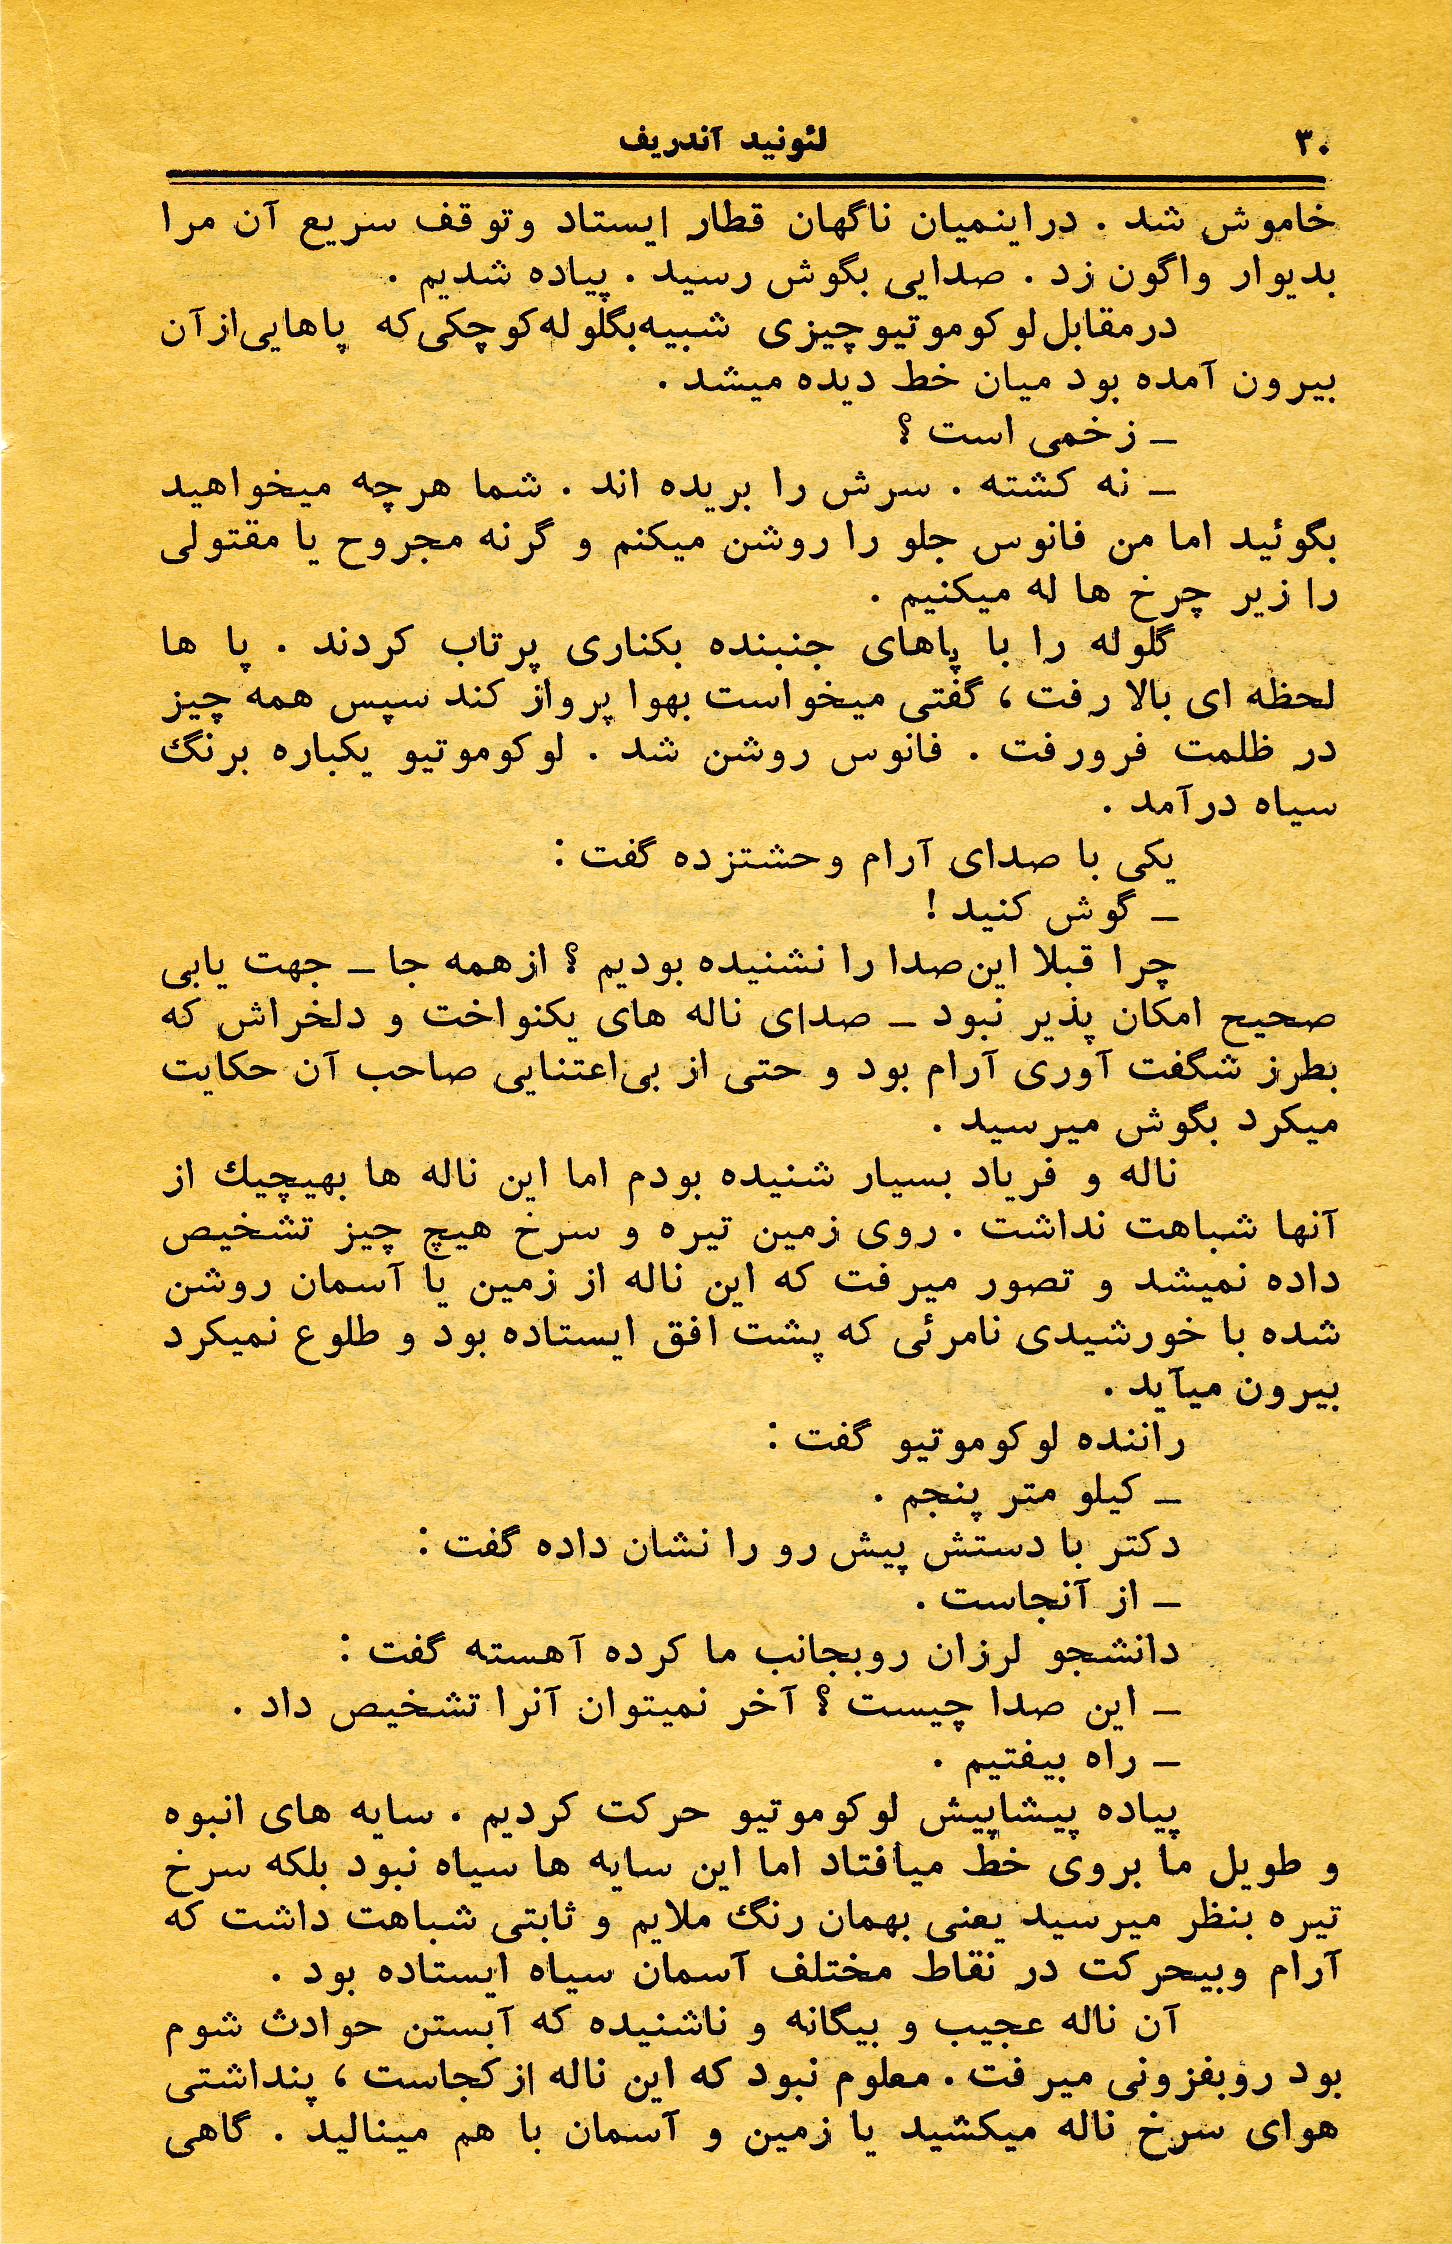 ۳۰
لئونید آندریف
خاموش شد . دراینمیان ناگهان قطار ایستاد وتوقف سریع آن مرا
بدیوار واگون زد . صدایی بگوش رسید . پیاده شدیم .
درمقابل لوکوموتیو چیزی شبیه بگلوله کوچکی که پاهایی از آن
بیرون آمده بود میان خط دیده میشد .
ــ زخمی است ؟
ــ نه کشته . سرش را بریده اند . شما هرچه میخواهید
بگوئید اما من فانوس جلو را روشن میکنم و گرنه مجروح یا مقتولی
را زیر چرخ ها له میکنیم .
گلوله را با پاهای جنبنده بکناری پرتاب کردند . پا ها
لحظه ای بالا رفت ، گفتی میخواست بهوا پرواز کند سپس همه چیز
در ظلمت فرورفت . فانوس روشن شد . لوکوموتیو یکباره برنگ
سیاه درآمد .
یکی با صدای آرام وحشتزده گفت :
ــ گوش کنید !
چرا قبلا این صدا را نشنیده بودیم ؟ ازهمه جا ــ جهت یابی
صحیح امکان پذیر نبود ــ صدای ناله های یکنواخت و دلخراش که
بطرز شگفت آوری آرام بود و حتی از بی‌اعتنایی صاحب آن حکایت
میکرد بگوش میرسید .
ناله و فریاد بسیار شنیده بودم اما این ناله ها بهیچیك از
آنها شباهت نداشت . روی زمین تیره و سرخ هیچ چیز تشخیص
داده نمیشد و تصور میرفت که این ناله از زمین یا آسمان روشن
شده با خورشیدی نامرئی که پشت افق ایستاده بود و طلوع نمیکرد
بیرون میآید .
راننده لوکوموتیو گفت :
ــ کیلو متر پنجم .
دکتر با دستش پیش رو را نشان داده گفت :
ــ از آنجاست .
دانشجو لرزان روبجانب ما کرده آهسته گفت :
ــ این صدا چیست ؟ آخر نمیتوان آنرا تشخیص داد .
ــ راه بیفتیم .
پیاده پیشاپیش لوکوموتیو حرکت کردیم . سایه های انبوه
و طویل ما بروی خط میافتاد اما این سایه ها سیاه نبود بلکه سرخ
تیره بنظر میرسید یعنی بهمان رنگ ملایم و ثابتی شباهت داشت که
آرام وبیحرکت در نقاط مختلف آسمان سیاه ایستاده بود .
آن ناله عجیب و بیگانه و ناشنیده که آبستن حوادث شوم
بود روبفزونی میرفت . معلوم نبود که این ناله از کجاست ، پنداشتی
هوای سرخ ناله میکشید یا زمین و آسمان با هم مینالید . گاهی